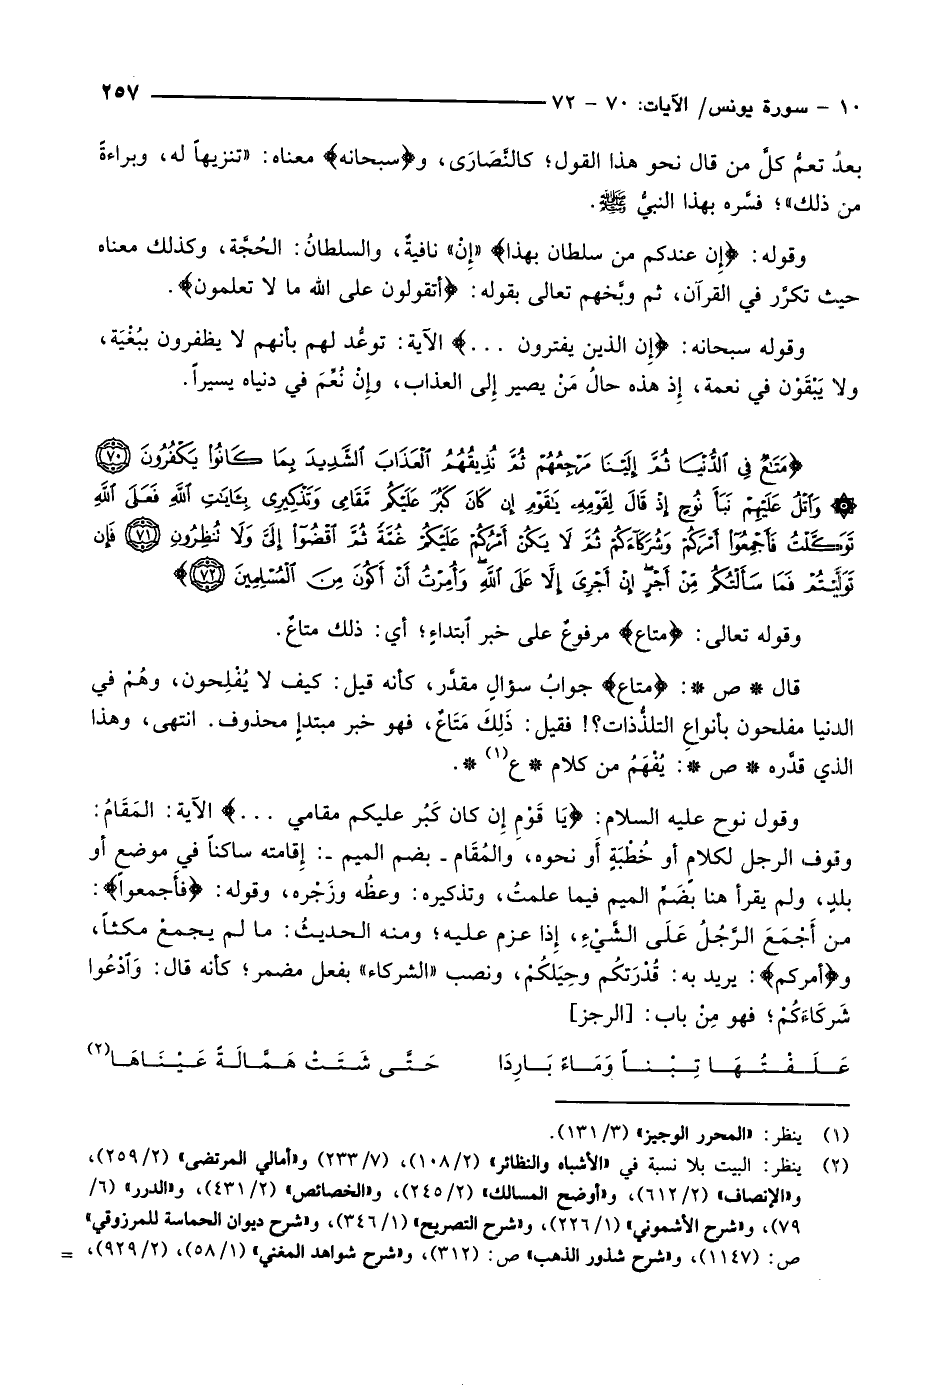 ١٠ - سورة يونس/ الآيات: ٧٠ - ٧٢ ٢٥٧
بعدُ تعمُّ كلَّ من قال نحو هذا القول؛ كالنَّصَارَى، و﴿سبحانه﴾ معناه: «تنزيهاً له، وبراءةً
من ذلك»؛ فسَّره بهذا النبيُّ ﷺ.
وقوله: ﴿إِن عندكم من سلطان بهذا﴾ «إِنْ» نافيةٌ، والسلطانُ: الحُجَّة، وكذلك معناه
حيث تكرَّر في القرآن، ثم وبَّخهم تعالى بقوله: ﴿أتقولون على الله ما لا تعلمون﴾.
وقوله سبحانه: ﴿إِن الذين يفترون ...﴾ الآية: توعُّد لهم بأنهم لا يظفرون ببُغْيَة،
ولا يَبْقَوْن في نعمة، إِذ هذه حالُ مَنْ يصير إِلى العذاب، وإِنْ نُعِّمَ في دنياه يسيراً.
﴿مَتَٰعٌ فِى ٱلدُّنْيَا ثُمَّ إِلَيْنَا مَرْجِعُهُمْ ثُمَّ نُذِيقُهُمُ ٱلْعَذَابَ ٱلشَّدِيدَ بِمَا كَانُوا۟ يَكْفُرُونَ ﴿٧٠﴾
۞ وَٱتْلُ عَلَيْهِمْ نَبَأَ نُوحٍ إِذْ قَالَ لِقَوْمِهِۦ يَٰقَوْمِ إِن كَانَ كَبُرَ عَلَيْكُم مَّقَامِى وَتَذْكِيرِى بِـَٔايَٰتِ ٱللَّهِ فَعَلَى ٱللَّهِ
تَوَكَّلْتُ فَأَجْمِعُوٓا۟ أَمْرَكُمْ وَشُرَكَآءَكُمْ ثُمَّ لَا يَكُنْ أَمْرُكُمْ عَلَيْكُمْ غُمَّةً ثُمَّ ٱقْضُوٓا۟ إِلَىَّ وَلَا تُنظِرُونِ ﴿٧١﴾ فَإِن
تَوَلَّيْتُمْ فَمَا سَأَلْتُكُم مِّنْ أَجْرٍ إِنْ أَجْرِىَ إِلَّا عَلَى ٱللَّهِ وَأُمِرْتُ أَنْ أَكُونَ مِنَ ٱلْمُسْلِمِينَ ﴿٧٢﴾﴾
وقوله تعالى: ﴿متاع﴾ مرفوعٌ على خبر ٱبتداءٍ؛ أي: ذلك متاعٌ.
قال * ص *: ﴿متاع﴾ جوابُ سؤالٍ مقدَّر، كأنه قيل: كيف لا يُفْلِحون، وهُمْ في
الدنيا مفلحون بأنواعِ التلذُّذات؟! فقيل: ذَلِكَ مَتَاعٌ، فهو خبر مبتدإٍ محذوف. انتهى، وهذا
الذي قدَّره * ص *: يُفْهَمُ من كلام * ع(١) *.
وقول نوح عليه السلام: ﴿يَا قَوْمِ إِن كان كَبُر عليكم مقامي ...﴾ الآية: المَقَامُ:
وقوف الرجل لكلام أو خُطْبَةٍ أَو نحوه، والمُقَام - بضم الميم -: إِقامته ساكناً في موضعٍ أو
بلدٍ، ولم يقرأ هنا بضَمِّ الميم فيما علمتُ، وتذكيره: وعظُه وزَجْره، وقوله: ﴿فأَجمعوا﴾:
من أَجْمَعَ الرَّجُلُ عَلَى الشَّيْءِ، إِذا عزم عليه؛ ومنه الحديثُ: ما لم يجمعْ مكثاً،
و﴿أمركم﴾: يريد به: قُدْرَتكُم وحِيَلكُمْ، ونصب «الشركاء» بفعل مضمر؛ كأنه قال: وَٱدْعُوا
شَرَكَاءَكُمْ؛ فهو مِنْ باب: [الرجز]
عَلَفْتُهَا تِبْناً وَمَاءً بَارِدَا حَتَّى شَتَتْ هَمَّالَةً عَيْنَاهَا(٢)
(١) ينظر: «المحرر الوجيز» (٣/ ١٣١).
(٢) ينظر: البيت بلا نسبة في «الأشباه والنظائر» (٢/ ١٠٨)، (٧/ ٢٣٣) و«أمالي المرتضى» (٢/ ٢٥٩)،
و«الإنصاف» (٢/ ٦١٢)، و«أوضح المسالك» (٢/ ٢٤٥)، و«الخصائص» (٢/ ٤٣١)، و«الدرر» (٦/
٧٩)، و«شرح الأشموني» (١/ ٢٢٦)، و«شرح التصريح» (١/ ٣٤٦)، و«شرح ديوان الحماسة للمرزوقي»
ص: (١١٤٧)، و«شرح شذور الذهب» ص: (٣١٢)، و«شرح شواهد المغني» (١/ ٥٨)، (٢/ ٩٢٩)، =